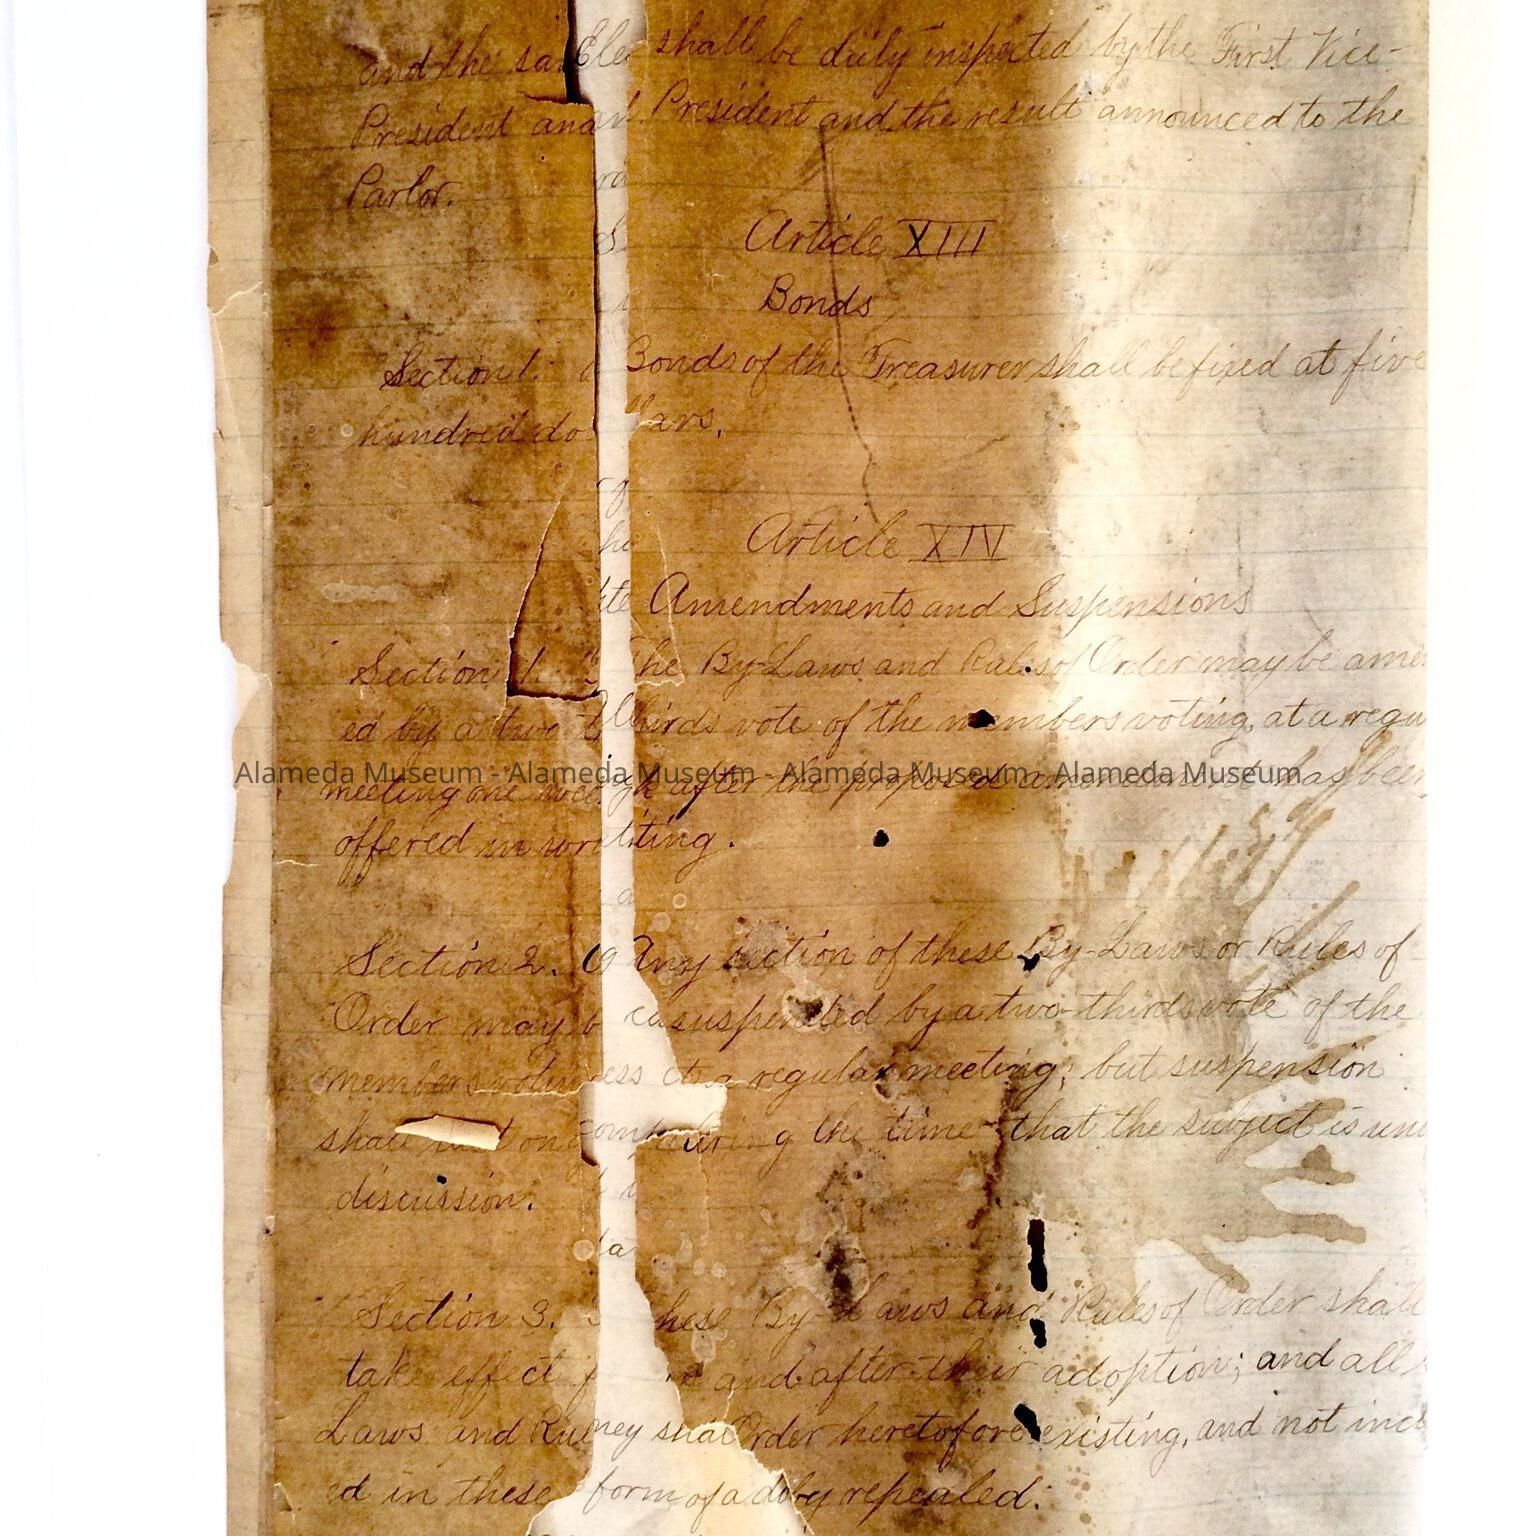 and the sa Elec shall be duly inspected by the First Vice-
President and President and the result announced to the
Parlor.
Article XIII
Bonds
Section 1. Bonds of the Treasurer shall be fixed at five
hundred do llars.
Article XIV
Amendments and Suspensions
Section 1. The By-Laws and Rules of Order may be amen
ed by a two thirds vote of the members voting, at a regu
Alameda Museum - Alameda Museum - Alameda Museum - Alameda Museum
meeting one week after the proposed amendment has been
offered in writing.
Section 2. Any section of these By-Laws or Rules of
Order may b suspended by a two-thirds vote of the
members voting a regular meeting; but suspension
shall on during the time that the subject is un
discussion.
Section 3. hese By-Laws and Rules of Order shall
take effect f and after their adoption; and all
Laws and Ru ney shall Order heretofore existing, and not incl
ed in these form of a by repealed.